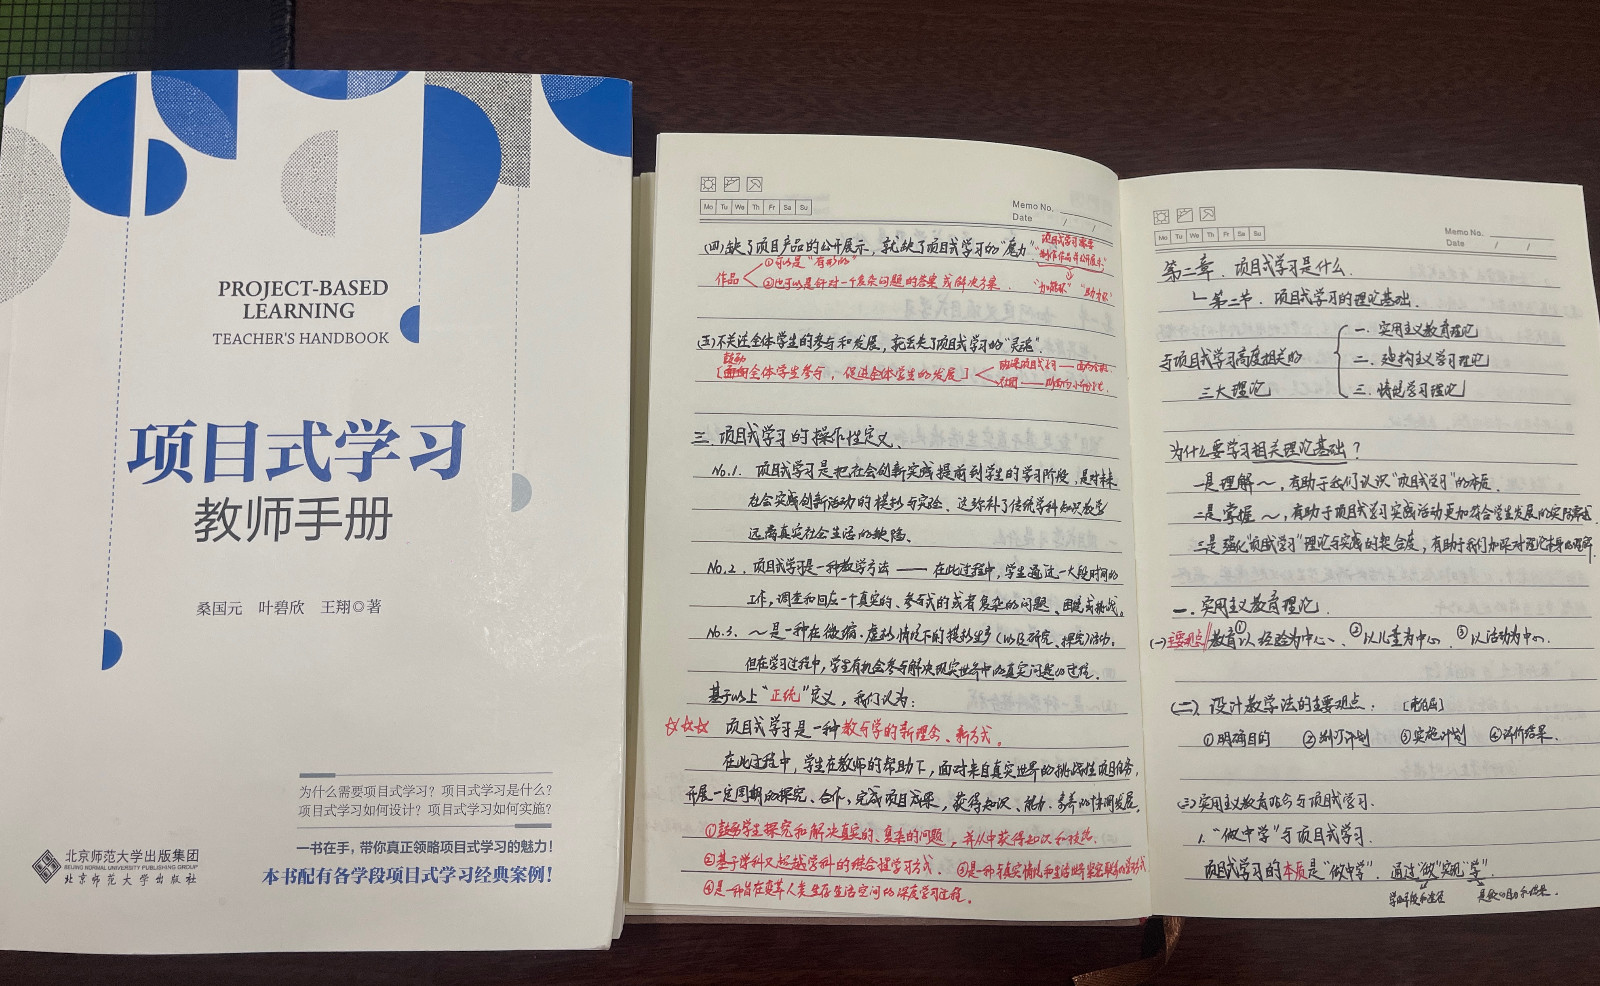 PROJECT-BASED
LEARNING
TEACHER'S HANDBOOK
项目式学习
教师手册
桑国元 叶碧欣 王翔◎著
为什么需要项目式学习？项目式学习是什么？
项目式学习如何设计？项目式学习如何实施？
一书在手，带你真正领略项目式学习的魅力！
本书配有各学段项目式学习经典案例！
北京师范大学出版集团
BEIJING NORMAL UNIVERSITY PUBLISHING GROUP
北京师范大学出版社
Mo Tu We Th Fr Sa Su
Memo No.
Date / /
(四)缺了项目产品的公开展示，就缺了项目式学习的"魔力"
项目式学习需要
"制作作品并公开展示"
作品
①可以是"有形的"
②也可以是针对一个复杂问题的答案或解决方案.
(五)不关注全体学生的参与和发展，就丢失了项目式学习的"灵魂".
鼓励
[面向全体学生参与，促进全体学生的发展]
三.项目式学习的操作性定义.
No.1. 项目式学习是把社会创新实践提前到学生的学习阶段，是对未来
社会实践创新活动的模拟与实验、这弥补了传统学科知识教学
远离真实社会生活的缺陷、
No.2. 项目式学习是一种教学方法——在此过程中，学生通过一大段时间的
工作，调查和回应一个真实的、参与式的或者复杂的问题、困境或挑战。
No.3. ～是一种在微缩.虚拟情况下的模拟进步(以及研究、探究)活动，
但在学习过程中，学生有机会参与解决现实世界中的真实问题的过程.
基于以上"正统"定义，我们认为：
☆☆☆ 项目式学习是一种教与学的新理念、新方式.
在此过程中，学生在教师的帮助下，面对来自真实世界的挑战性项目任务，
开展一定周期的探究、合作，完成项目成果，获得知识、能力.素养的协同发展.
①鼓励学生探究和解决真实的、复杂的问题，并从中获得知识和技能.
②基于学科又超越学科的综合性学习方式 ③是一种与真实情境和生活世界紧密联系的学习方式
④是一种旨在变革人类生存生活空间的深度学习过程.
Mo Tu We Th Fr Sa Su
Memo No.
Date / /
第二章.项目式学习是什么.
第二节.项目式学习的理论基础.
与项目式学习高度相关的
三大理论
一.实用主义教育理论
二.建构主义学习理论
三.情境学习理论
为什么要学习相关理论基础？
一是理解～，有助于我们认识"项目式学习"的本质.
二是掌握～，有助于项目式学习实践活动更加符合学生发展的实际需求.
三是强化"项目式学习"理论与实践的契合度，有助于我们加深对理论本身的理解.
一.实用主义教育理论.
(一)主要观点 教育①以经验为中心、②以儿童为中心 ③以活动为中心.
(二).设计教学法的主要观点. [克伯屈]
①明确目的 ②制订计划 ③实施计划 ④评价结果.
(三)实用主义教育理论与项目式学习.
1."做中学"与项目式学习.
项目式学习的本质是"做中学"，通过"做"实现"学".
学的手段和途径